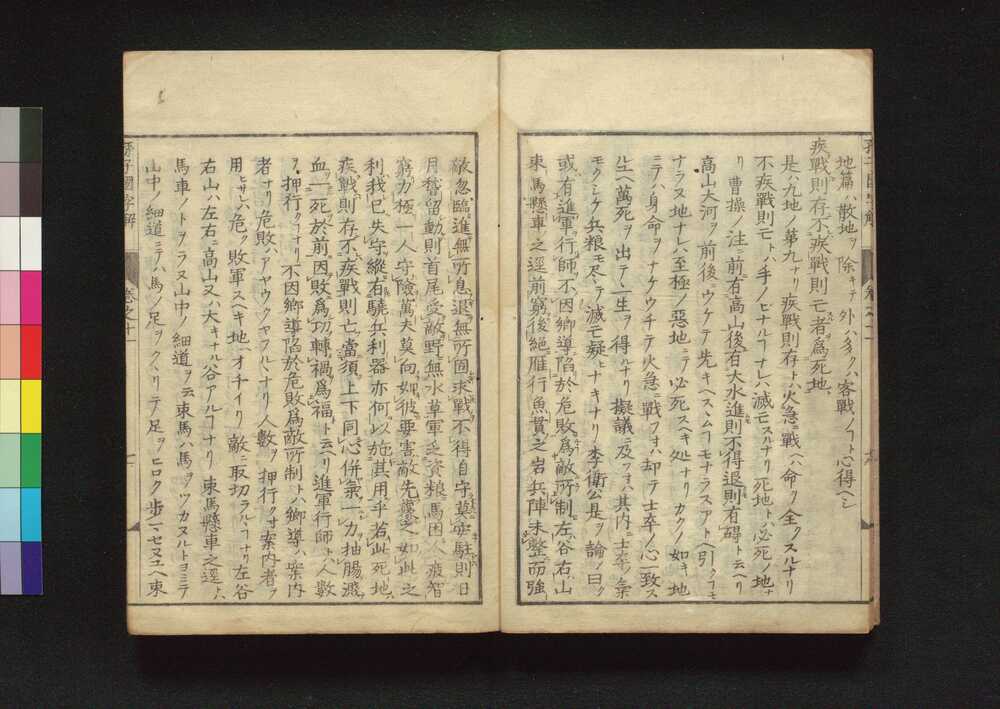 地篇ハ散地ヲ除キテ外ハ多クハ客戰ノコト心得ヘシ
疾戰則存不疾戰則亡者爲死地
是ハ九地ノ第九ナリ疾戰則存トハ火急ニ戰ヘハ命ヲ全クスルナリ
不疾戰則亡トハ手ノヒナルコナレハ滅亡スルナリ死地トハ必死ノ地ナ
リ曹操注前有高山後有大水進則不得退則有碍ト云ヘリ
高山大河ヲ前後ニウケテ先キヘスヽムコモナラスアトヘ引クコモ
ナラヌ地ナレハ至極ノ惡地ニテ必死スヘキ处ナリカクノ如キ地
ニテハ身命ヲナケウチテ火急ニ戰フオハ却テ士卒ノ心一致ス
ル㐧萬死ヲ出テ一生ヲ得ルナリ擬議ニ及フオハ其内ニ士卒氣
モクシケ兵粮モ尽テ滅亡疑ヒナキナリ李衛公是ヲ論ノ曰ク
或有進軍行師不因鄉導陷於危敗爲敵所制左谷右山
束馬懸車之逕前窮後絕雁行魚貫之岩兵陣未整而強
敵忽臨進無所息退無所固求戰不得自守莫安駐則日
月稽留動則首尾受敵野無水草軍乏資粮馬困人疲智
窮力極一人守險萬夫莫向如彼要害敵先據之如此之
利我已失守縱有驍兵利器亦何以施其用乎若此死地
疾戰則存不疾戰則亡當須上下同心併氣一力抽腸濺
血一死於前因敗爲功轉禍爲福ト云ヘリ進軍行師トハ人數
ヲ押行クコナリ不因鄉導陷於危敗爲敵所制トハ鄉導ハ案内
者ナリ危敗ハアヤウクヤフルヽナリ人數ヲ押行クオ案内者ヲ
用ヒサレハ危ク敗軍スヘキ地ヘオチイリ敵ニ取切ラルヽコナリ左谷
右山ハ左右ニ高山又ハ大キナル谷アルコナリ束馬懸車之逕トハ
馬車ノトヲラヌ山中ノ細道ヲ云束馬ハ馬ヲツカヌルトヨミテ
山中ノ細道ニテハ馬ノ足ヲクヽリテ足ヲヒロク歩マセヌユヘ束
孫子國字解
卷之十一